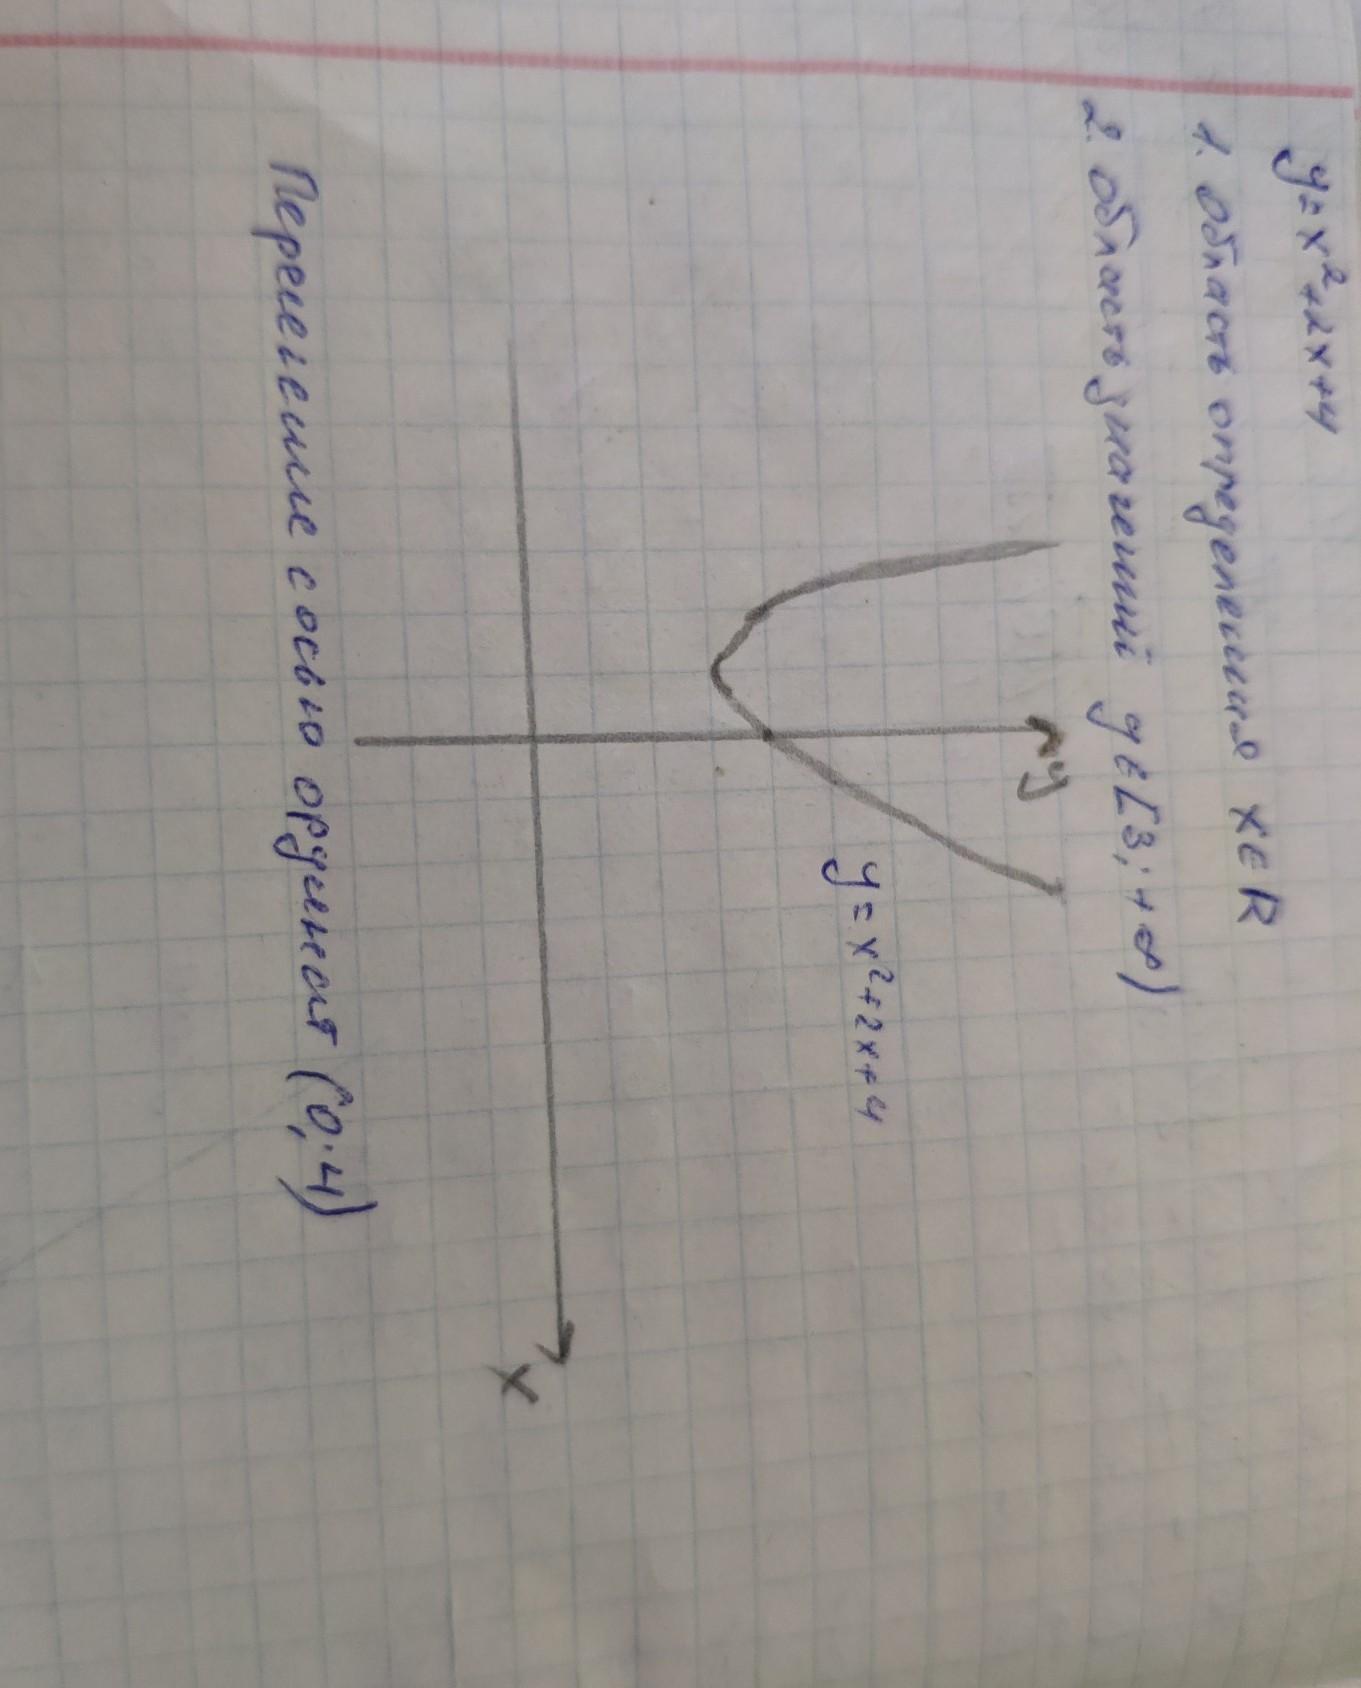 y=x²+2x+4
1. область определения x∈R
2. область значений y∈[3;+∞)
y
y=x²+2x+4
x
Пересечение с осью ординат (0;4)